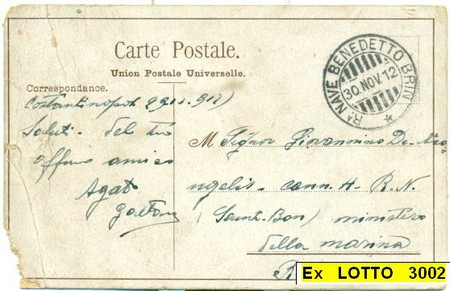 Carte Postale.
Union Postale Universelle.
Rª NAVE BENEDETTO BRIN
30.NOV.12
Correspondance.
Costantinopoli 29.11.912
Saluti. del tuo
affmo amico
Agat
Gaetano
M Signor Giovannino De
ngelis - cann. H. R. N.
(Saint-Bon) ministero
della marina
Ex LOTTO 3002